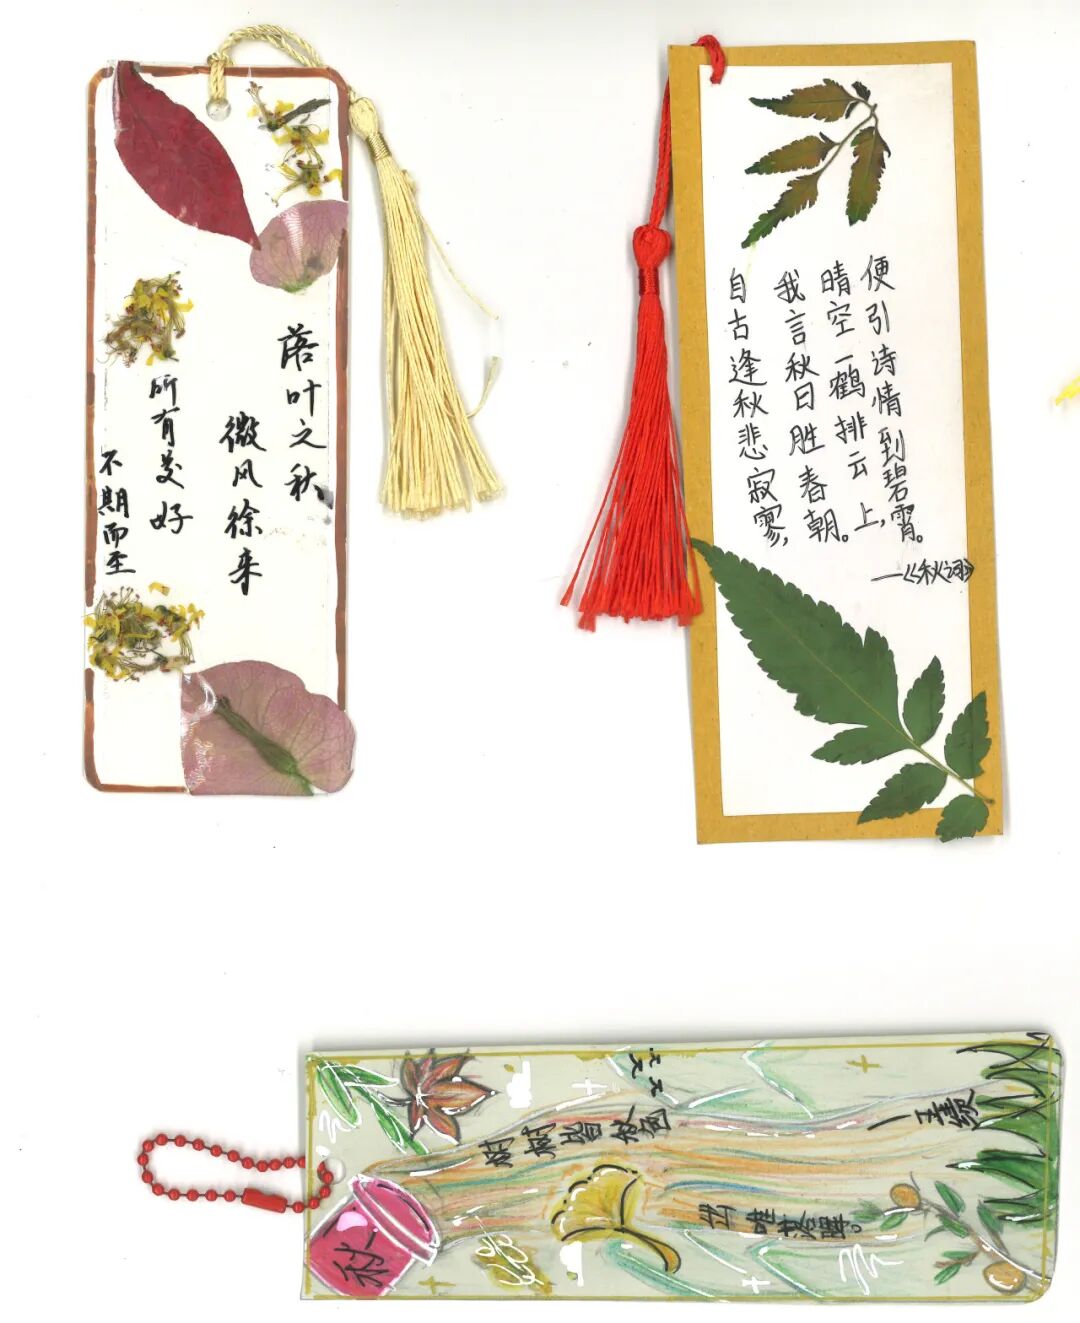 落叶之秋
微风徐来
所有美好
不期而至
自古逢秋悲寂寥，
我言秋日胜春朝。
晴空一鹤排云上，
便引诗情到碧霄。
—《秋词》
树树皆秋色
山唯落晖。
—王绩
秋